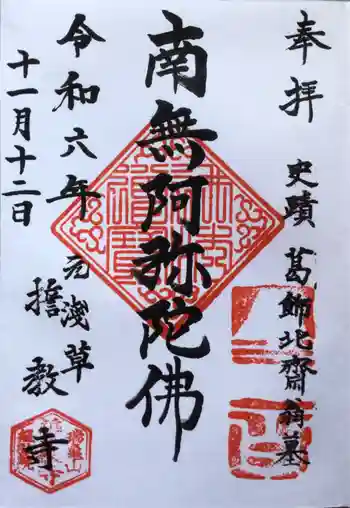 奉拝
史蹟 葛飾北齋翁墓
南無阿弥陀佛
令和六年
十一月十二日
元浅草
誓教寺